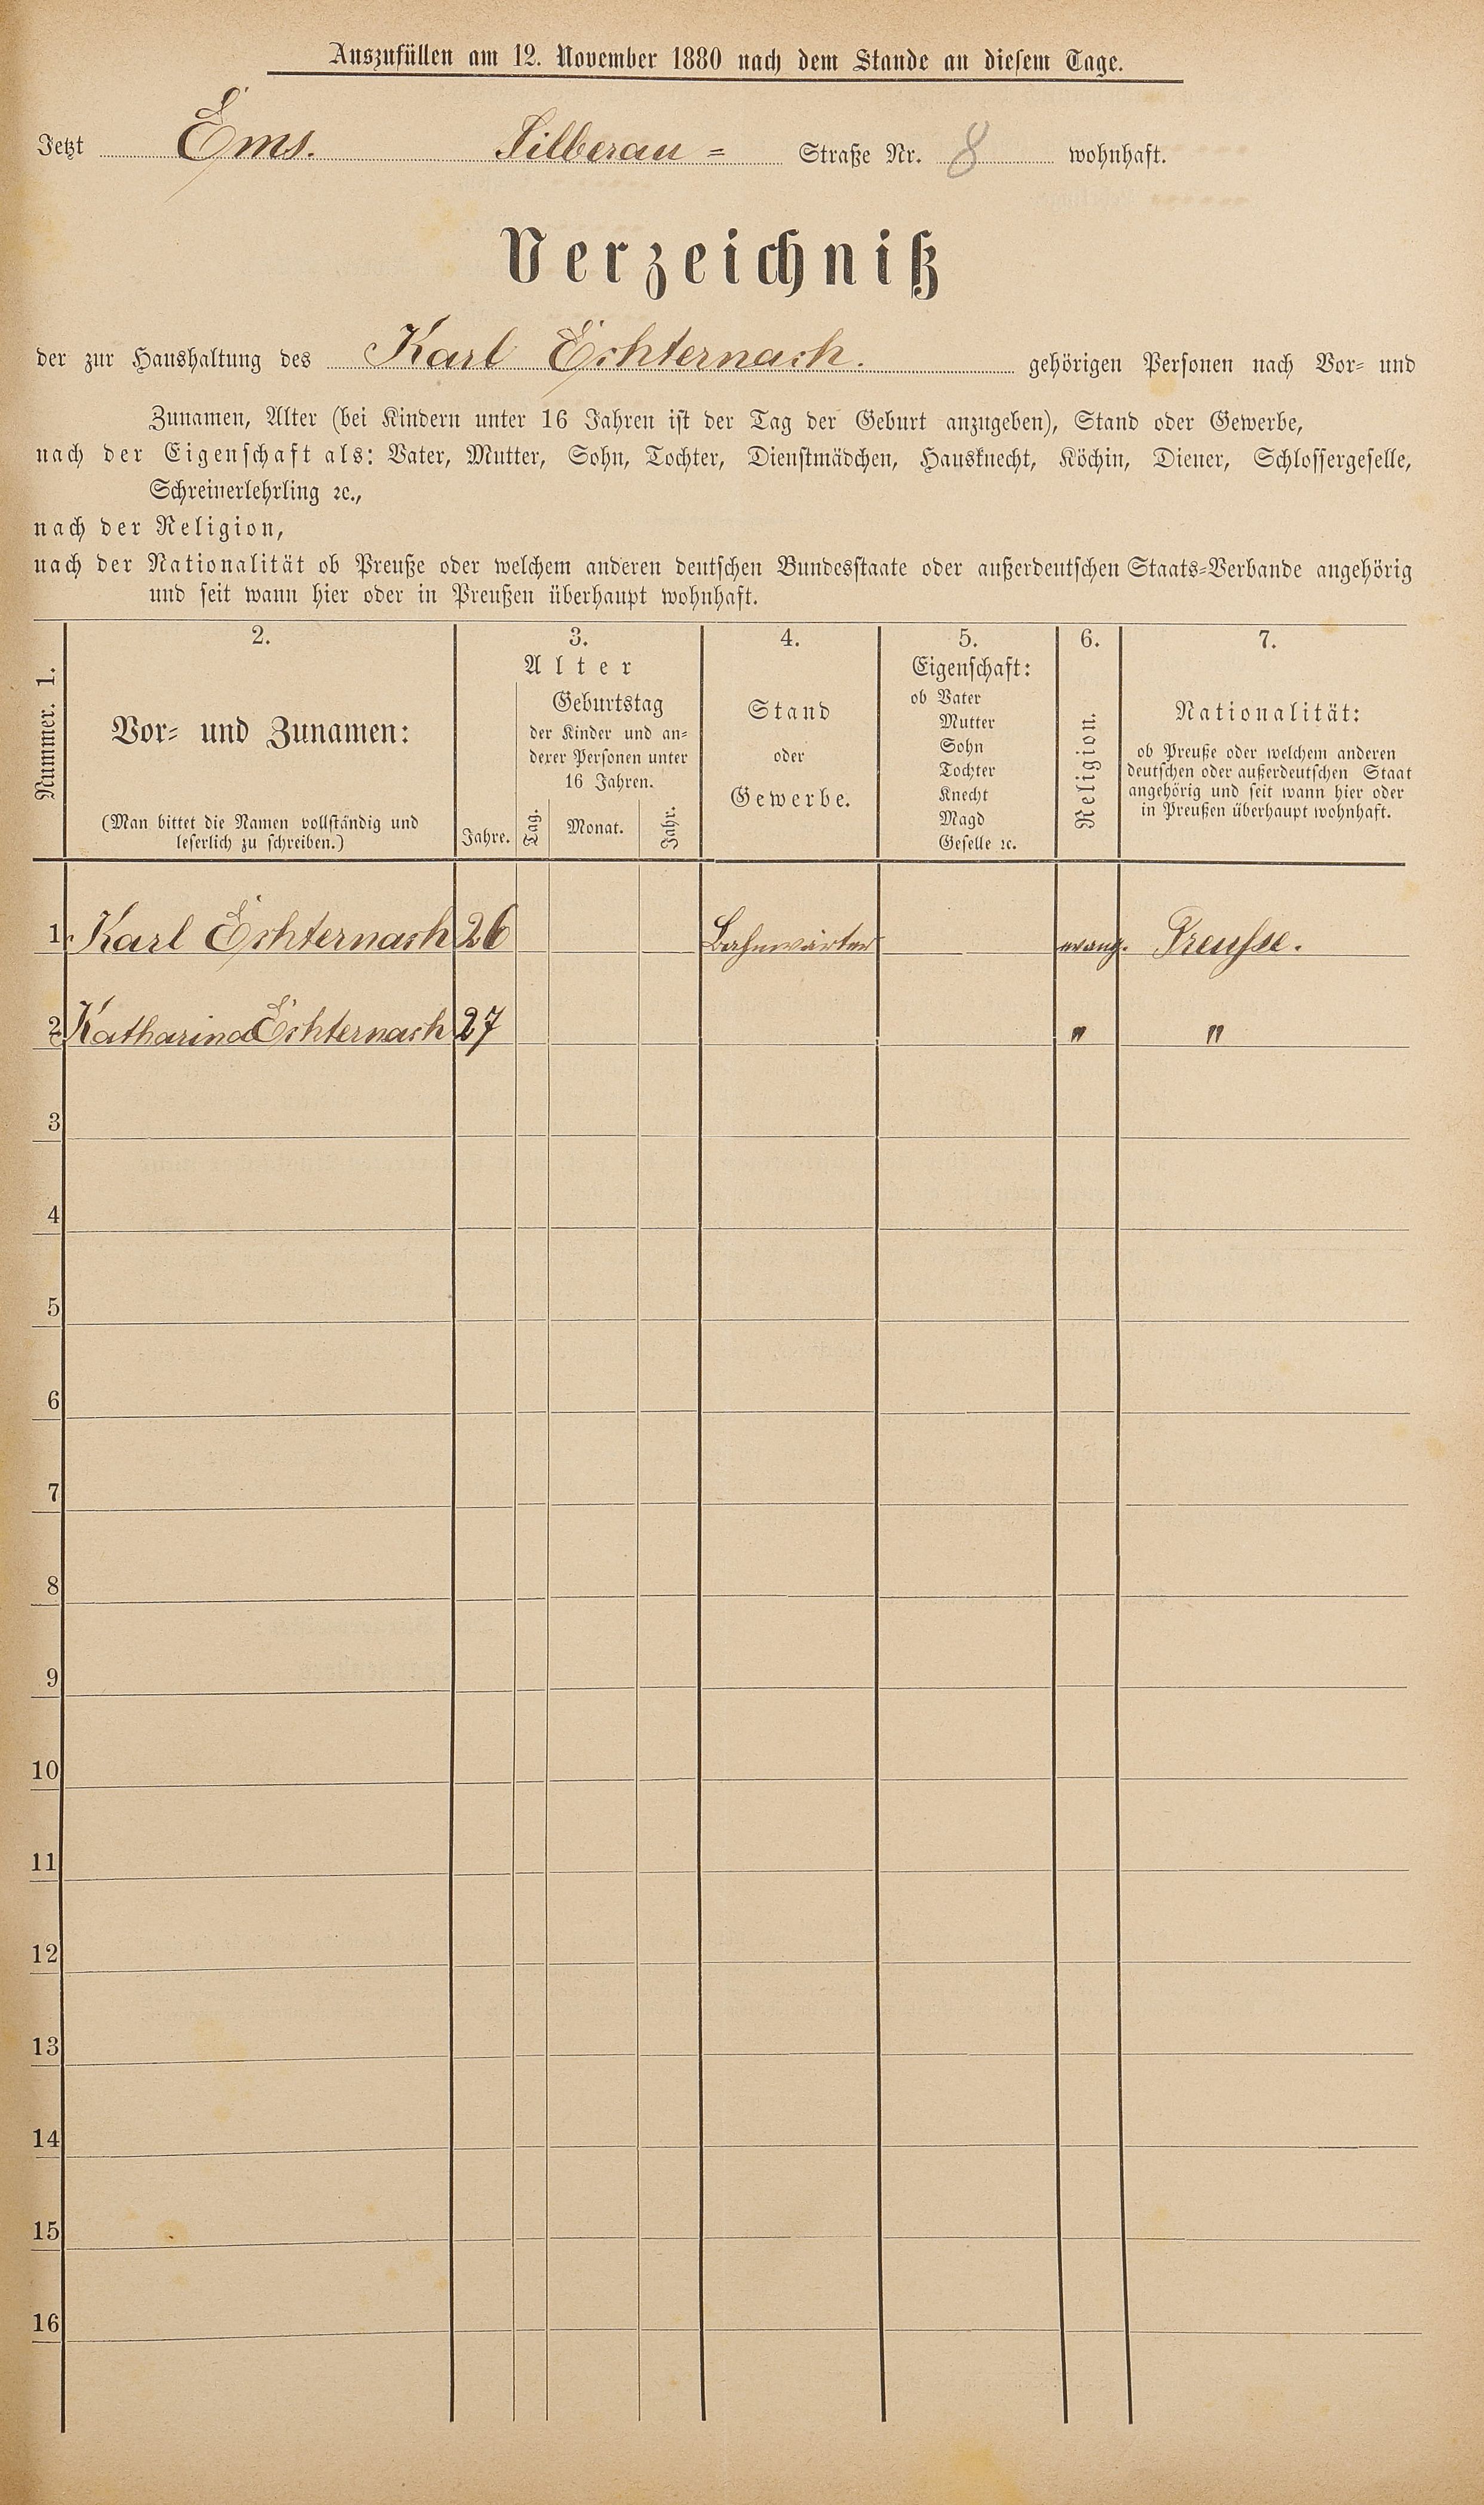 Auszufüllen am 12. November 1880 nach dem Stande an diesem Tage.
Jetzt Ems. Silberau = Straße Nr. 8 wohnhaft.
Verzeichniß
der zur Haushaltung des Karl Echternach. gehörigen Personen nach Vor= und
Zunamen, Alter (bei Kindern unter 16 Jahren ist der Tag der Geburt anzugeben), Stand oder Gewerbe,
nach der Eigenschaft als: Vater, Mutter, Sohn, Tochter, Dienstmädchen, Hausknecht, Köchin, Diener, Schlossergeselle,
Schreinerlehrling ꝛc.,
nach der Religion,
nach der Nationalität ob Preuße oder welchem anderen deutschen Bundesstaate oder außerdeutschen Staats=Verbande angehörig
und seit wann hier oder in Preußen überhaupt wohnhaft.
Nummer. 1.
2.
Vor= und Zunamen:
(Man bittet die Namen vollständig und
leserlich zu schreiben.)
3.
Alter
Jahre.
Geburtstag
der Kinder und an=
derer Personen unter
16 Jahren.
Tag. Monat. Jahr.
4.
Stand
oder
Gewerbe.
5.
Eigenschaft:
ob Vater
Mutter
Sohn
Tochter
Knecht
Magd
Geselle ꝛc.
6.
Religion.
7.
Nationalität:
ob Preuße oder welchem anderen
deutschen oder außerdeutschen Staat
angehörig und seit wann hier oder
in Preußen überhaupt wohnhaft.
1. Karl Echternach 26 Bahnwärter evang. Preusse.
2 Katharina Echternach 27 " "
3
4
5
6
7
8
9
10
11
12
13
14
15
16